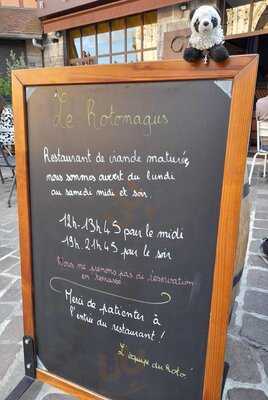 Le Rotomagus
Restaurant de viande maturée,
nous sommes ouvert du lundi
au samedi midi et soir.
12h-13h45 pour le midi
19h-21h45 pour le soir
Nous ne prenons pas de réservation
en terrasse
Merci de patienter à
l'entrée du restaurant !
L'équipe du Roto